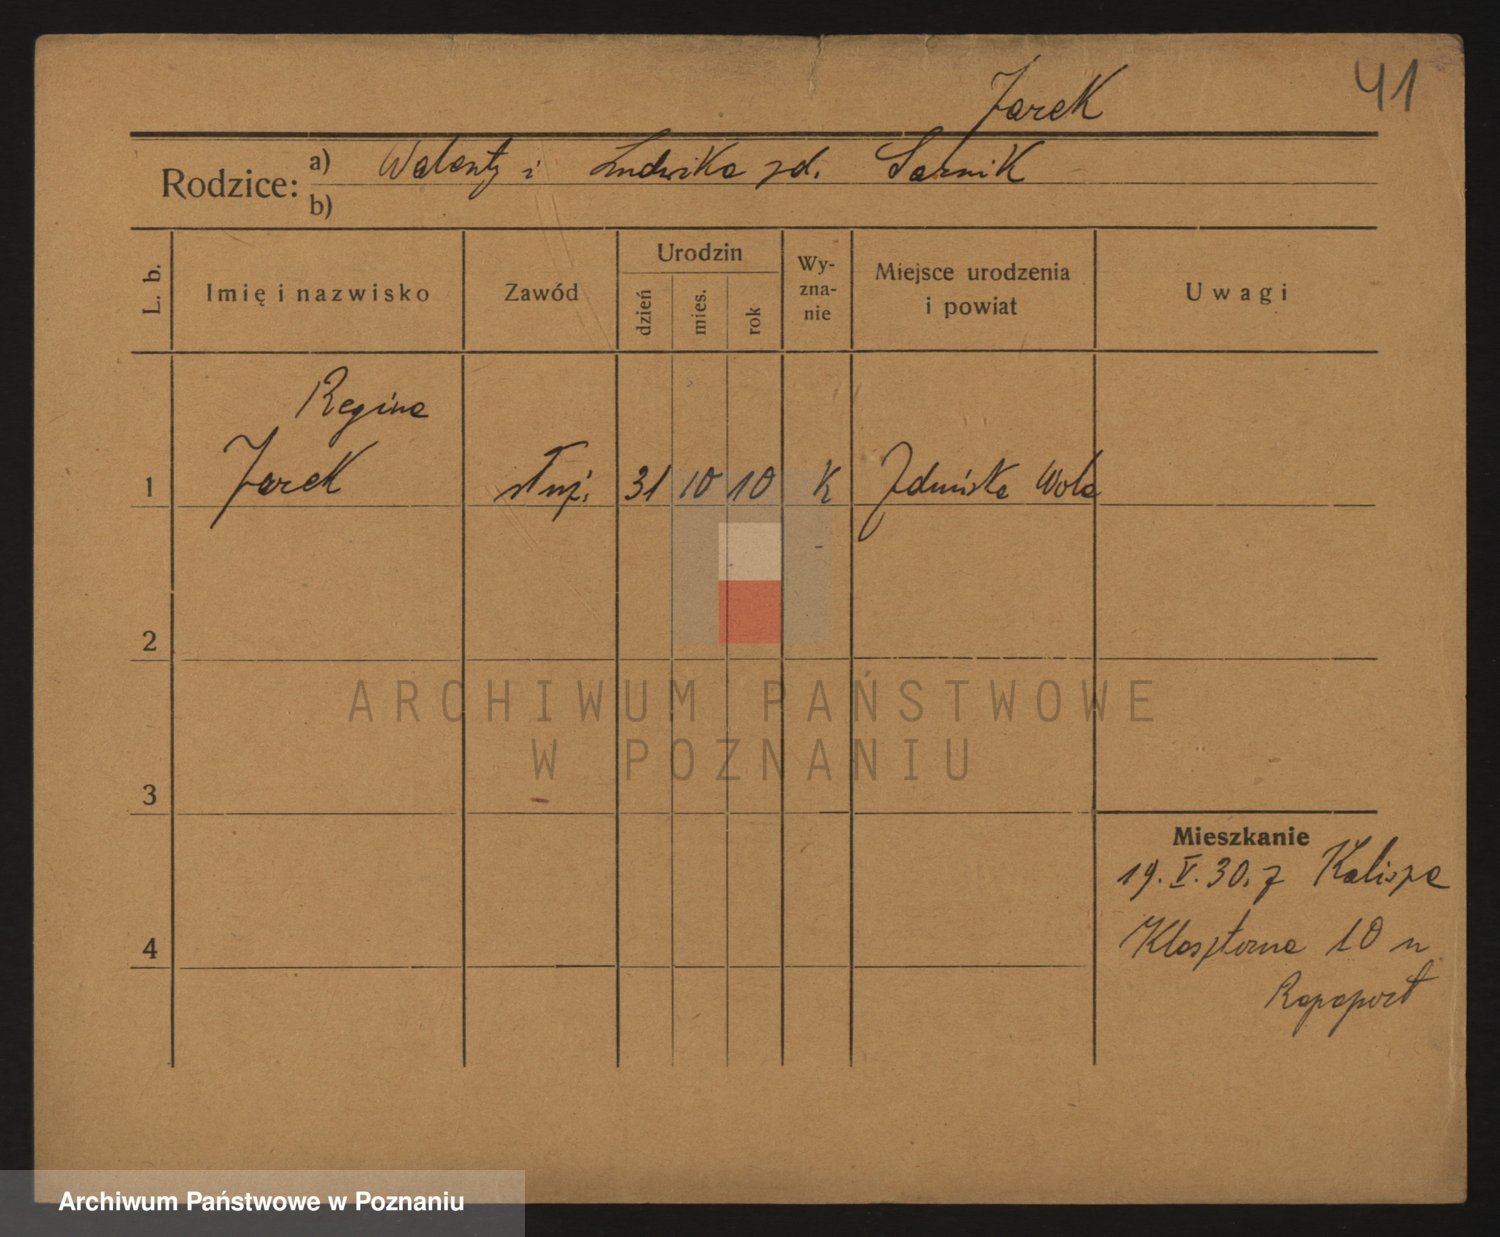 41
Jarek
Rodzice: a) Walenty i Ludwika zd. Sarnik
b)
L. b.
Imię i nazwisko
Zawód
Urodzin
dzień
mies.
rok
Wy-
zna-
nie
Miejsce urodzenia
i powiat
Uwagi
Regina
1 Jarek służ. 31 10 10 K Zduńska Wola
2
ARCHIWUM PAŃSTWOWE
W POZNANIU
3
Mieszkanie
19. V. 30. z Kalisza
4 Klasztorna 10 u
Rapaport
Archiwum Państwowe w Poznaniu